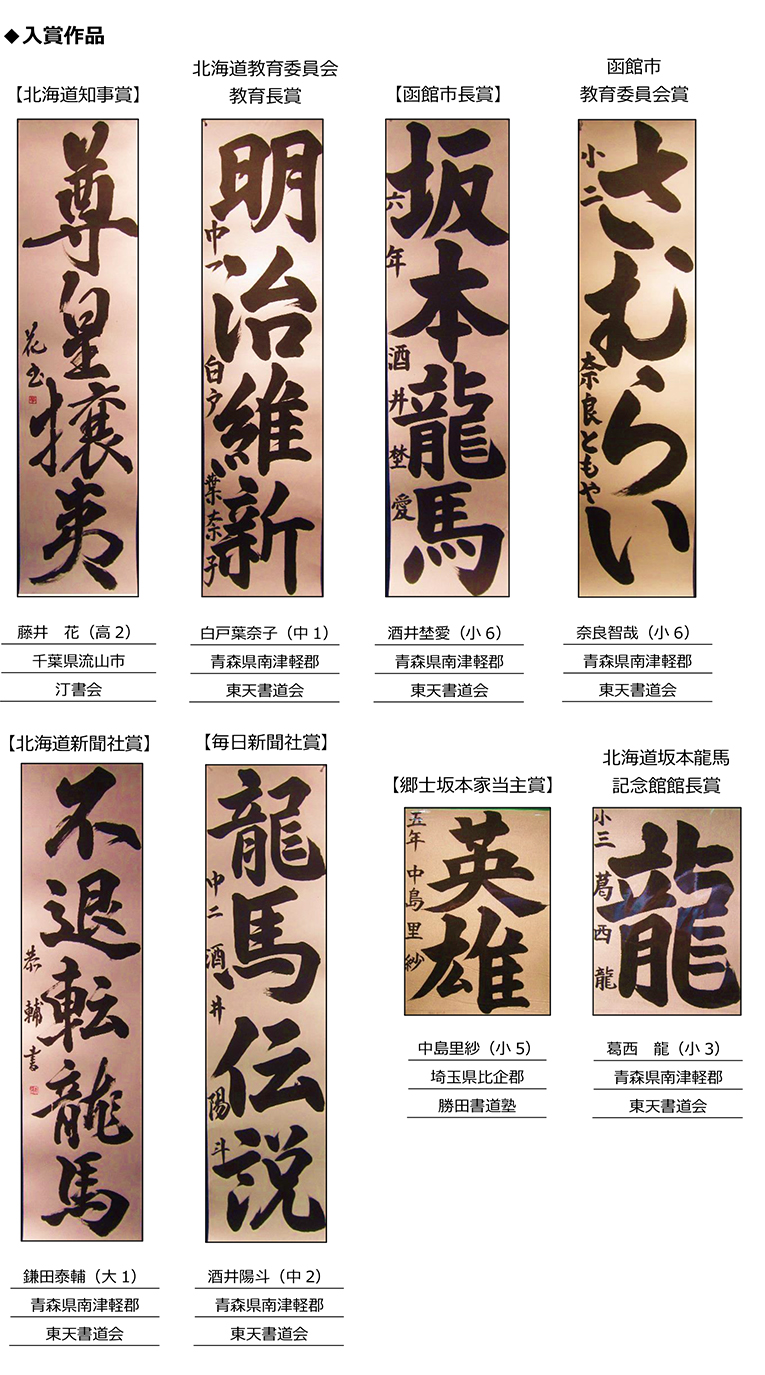 ◆入賞作品
【北海道知事賞】
尊皇攘夷
花書
藤井　花（高2）
千葉県流山市
汀書会
北海道教育委員会
教育長賞
明治維新
中一 白戸葉奈子
白戸葉奈子（中1）
青森県南津軽郡
東天書道会
【函館市長賞】
坂本龍馬
六年 酒井埜愛
酒井埜愛（小6）
青森県南津軽郡
東天書道会
函館市
教育委員会賞
さむらい
小二 奈良ともや
奈良智哉（小6）
青森県南津軽郡
東天書道会
【北海道新聞社賞】
不退転龍馬
恭輔書
鎌田泰輔（大1）
青森県南津軽郡
東天書道会
【毎日新聞社賞】
龍馬伝説
中二 酒井陽斗
酒井陽斗（中2）
青森県南津軽郡
東天書道会
【郷士坂本家当主賞】
英雄
五年 中島里紗
中島里紗（小5）
埼玉県比企郡
勝田書道塾
北海道坂本龍馬
記念館館長賞
龍
小三 葛西龍
葛西　龍（小3）
青森県南津軽郡
東天書道会